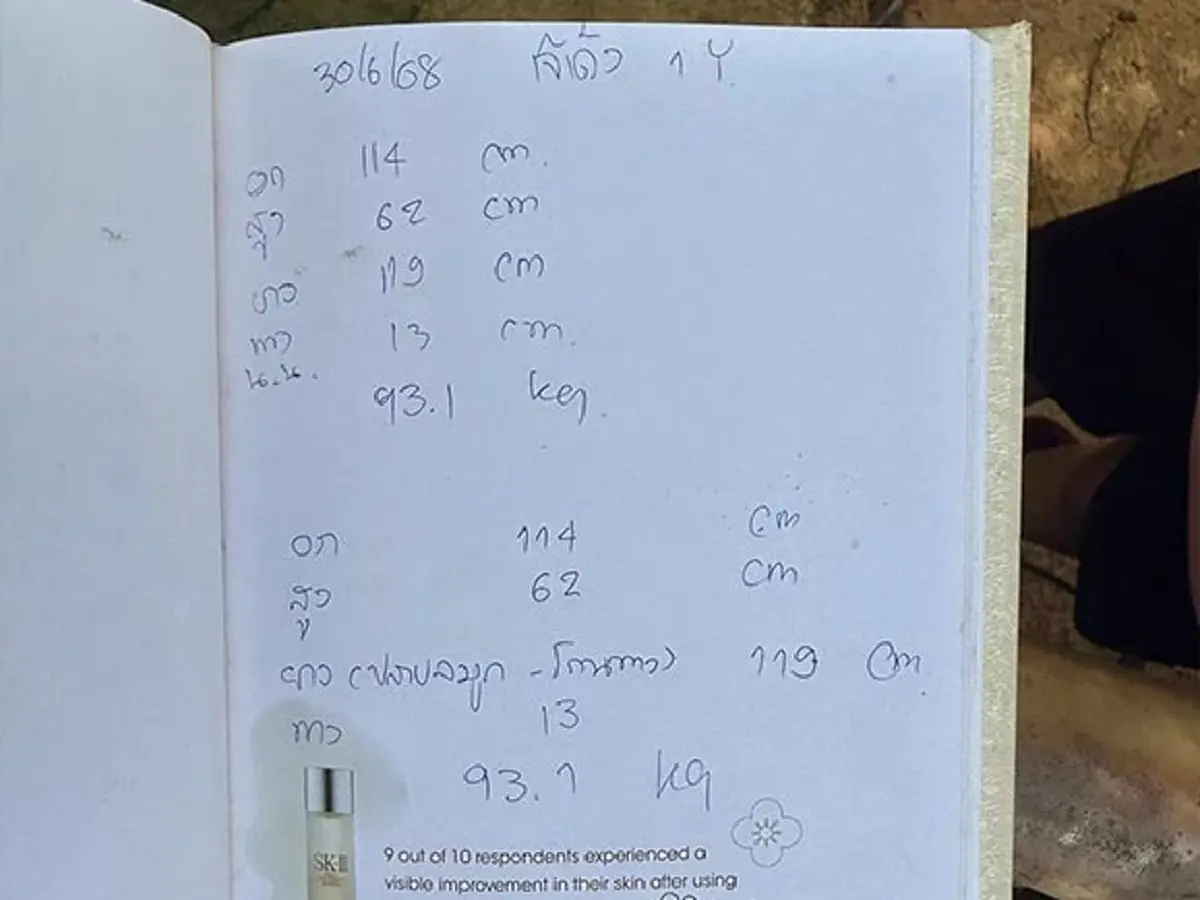 30/6/68 จิ๋เด้ง 1 Y
อก 114 cm.
สูง 62 cm
ยาว 119 cm
หาง 13 cm.
น.น. 93.1 kg.
อก 114 cm
สูง 62 cm
ยาว (ปลายจมูก - โคนหาง) 119 cm
หาง 13
93.1 kg
SK-II
9 out of 10 respondents experienced a
visible improvement in their skin after using